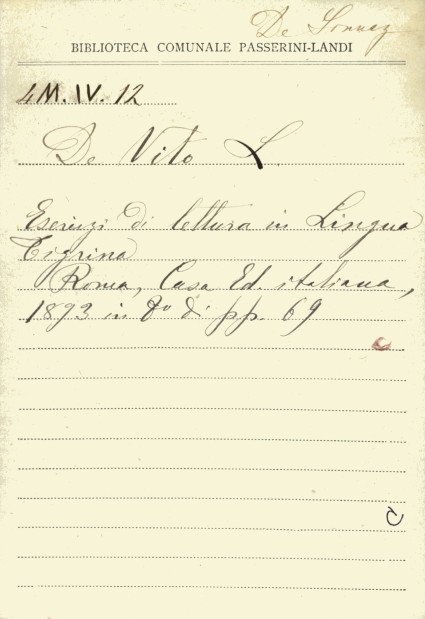 De
BIBLIOTECA COMUNALE PASSERINI-LANDI
4M. IV. 12
De Vito L.
Esercizi di lettura in Lingua
Tigrina
Roma, Casa Ed. italiana,
1893 in 8º di pp. 69
C